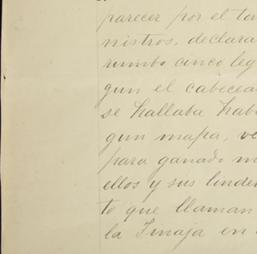 parecer por el tan
nistros, declara
rumbo cinco leg
gun el cabecea
se hallaba hab
gun mapa, ve
para ganado m
ellos y sus linder
to que llaman
la Tinaja en